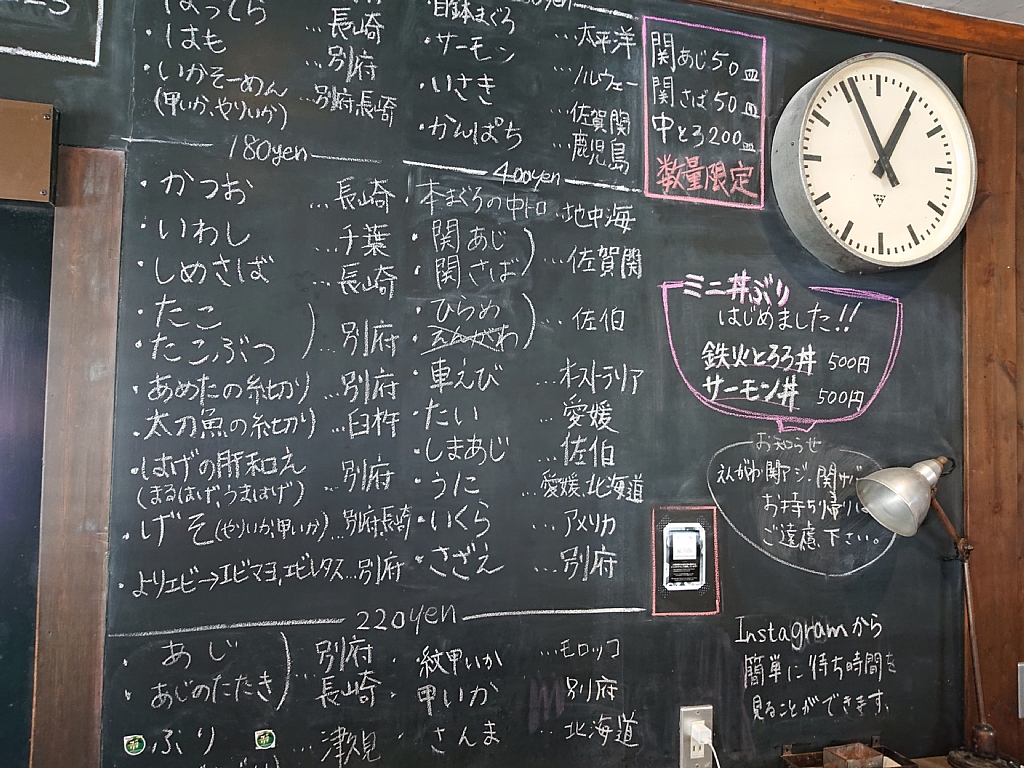 はも …別府
いかそーめん
(甲いか、やりいか) …別府、長崎
180yen
・かつお …長崎
・いわし …千葉
・しめさば …長崎
・たこ
・たこぶつ …別府
・あめたの糸切り …別府
・太刀魚の糸切り …臼杵
・はげの肝和え …別府
(まるはげ、うまはげ)
・げそ(やりいか、甲いか) …別府長崎
・よりエビ→エビマヨ、エビレタス…別府
・目鉢まぐろ …太平洋
・サーモン …ノルウェー
・いさき …佐賀関
・かんぱち …鹿児島
400yen
・本まぐろの中トロ …地中海
・関あじ
・関さば …佐賀関
・ひらめ
・えんがわ …佐伯
・車えび …オーストラリア
・たい …愛媛
・しまあじ …佐伯
・うに …愛媛、北海道
・いくら …アメリカ
・さざえ …別府
220yen
・あじ …別府
・あじのたたき 長崎
・ぶり …津久見
・紋甲いか …モロッコ
・甲いか …別府
・さんま …北海道
関あじ50皿
関さば50皿
中とろ200皿
数量限定
ミニ丼ぶり
はじめました!!
鉄火とろろ丼 500円
サーモン丼 500円
お知らせ
えんがわ関アジ・関サバ
お持ち帰りは
ご遠慮下さい。
Instagramから
簡単に待ち時間を
見ることができます。